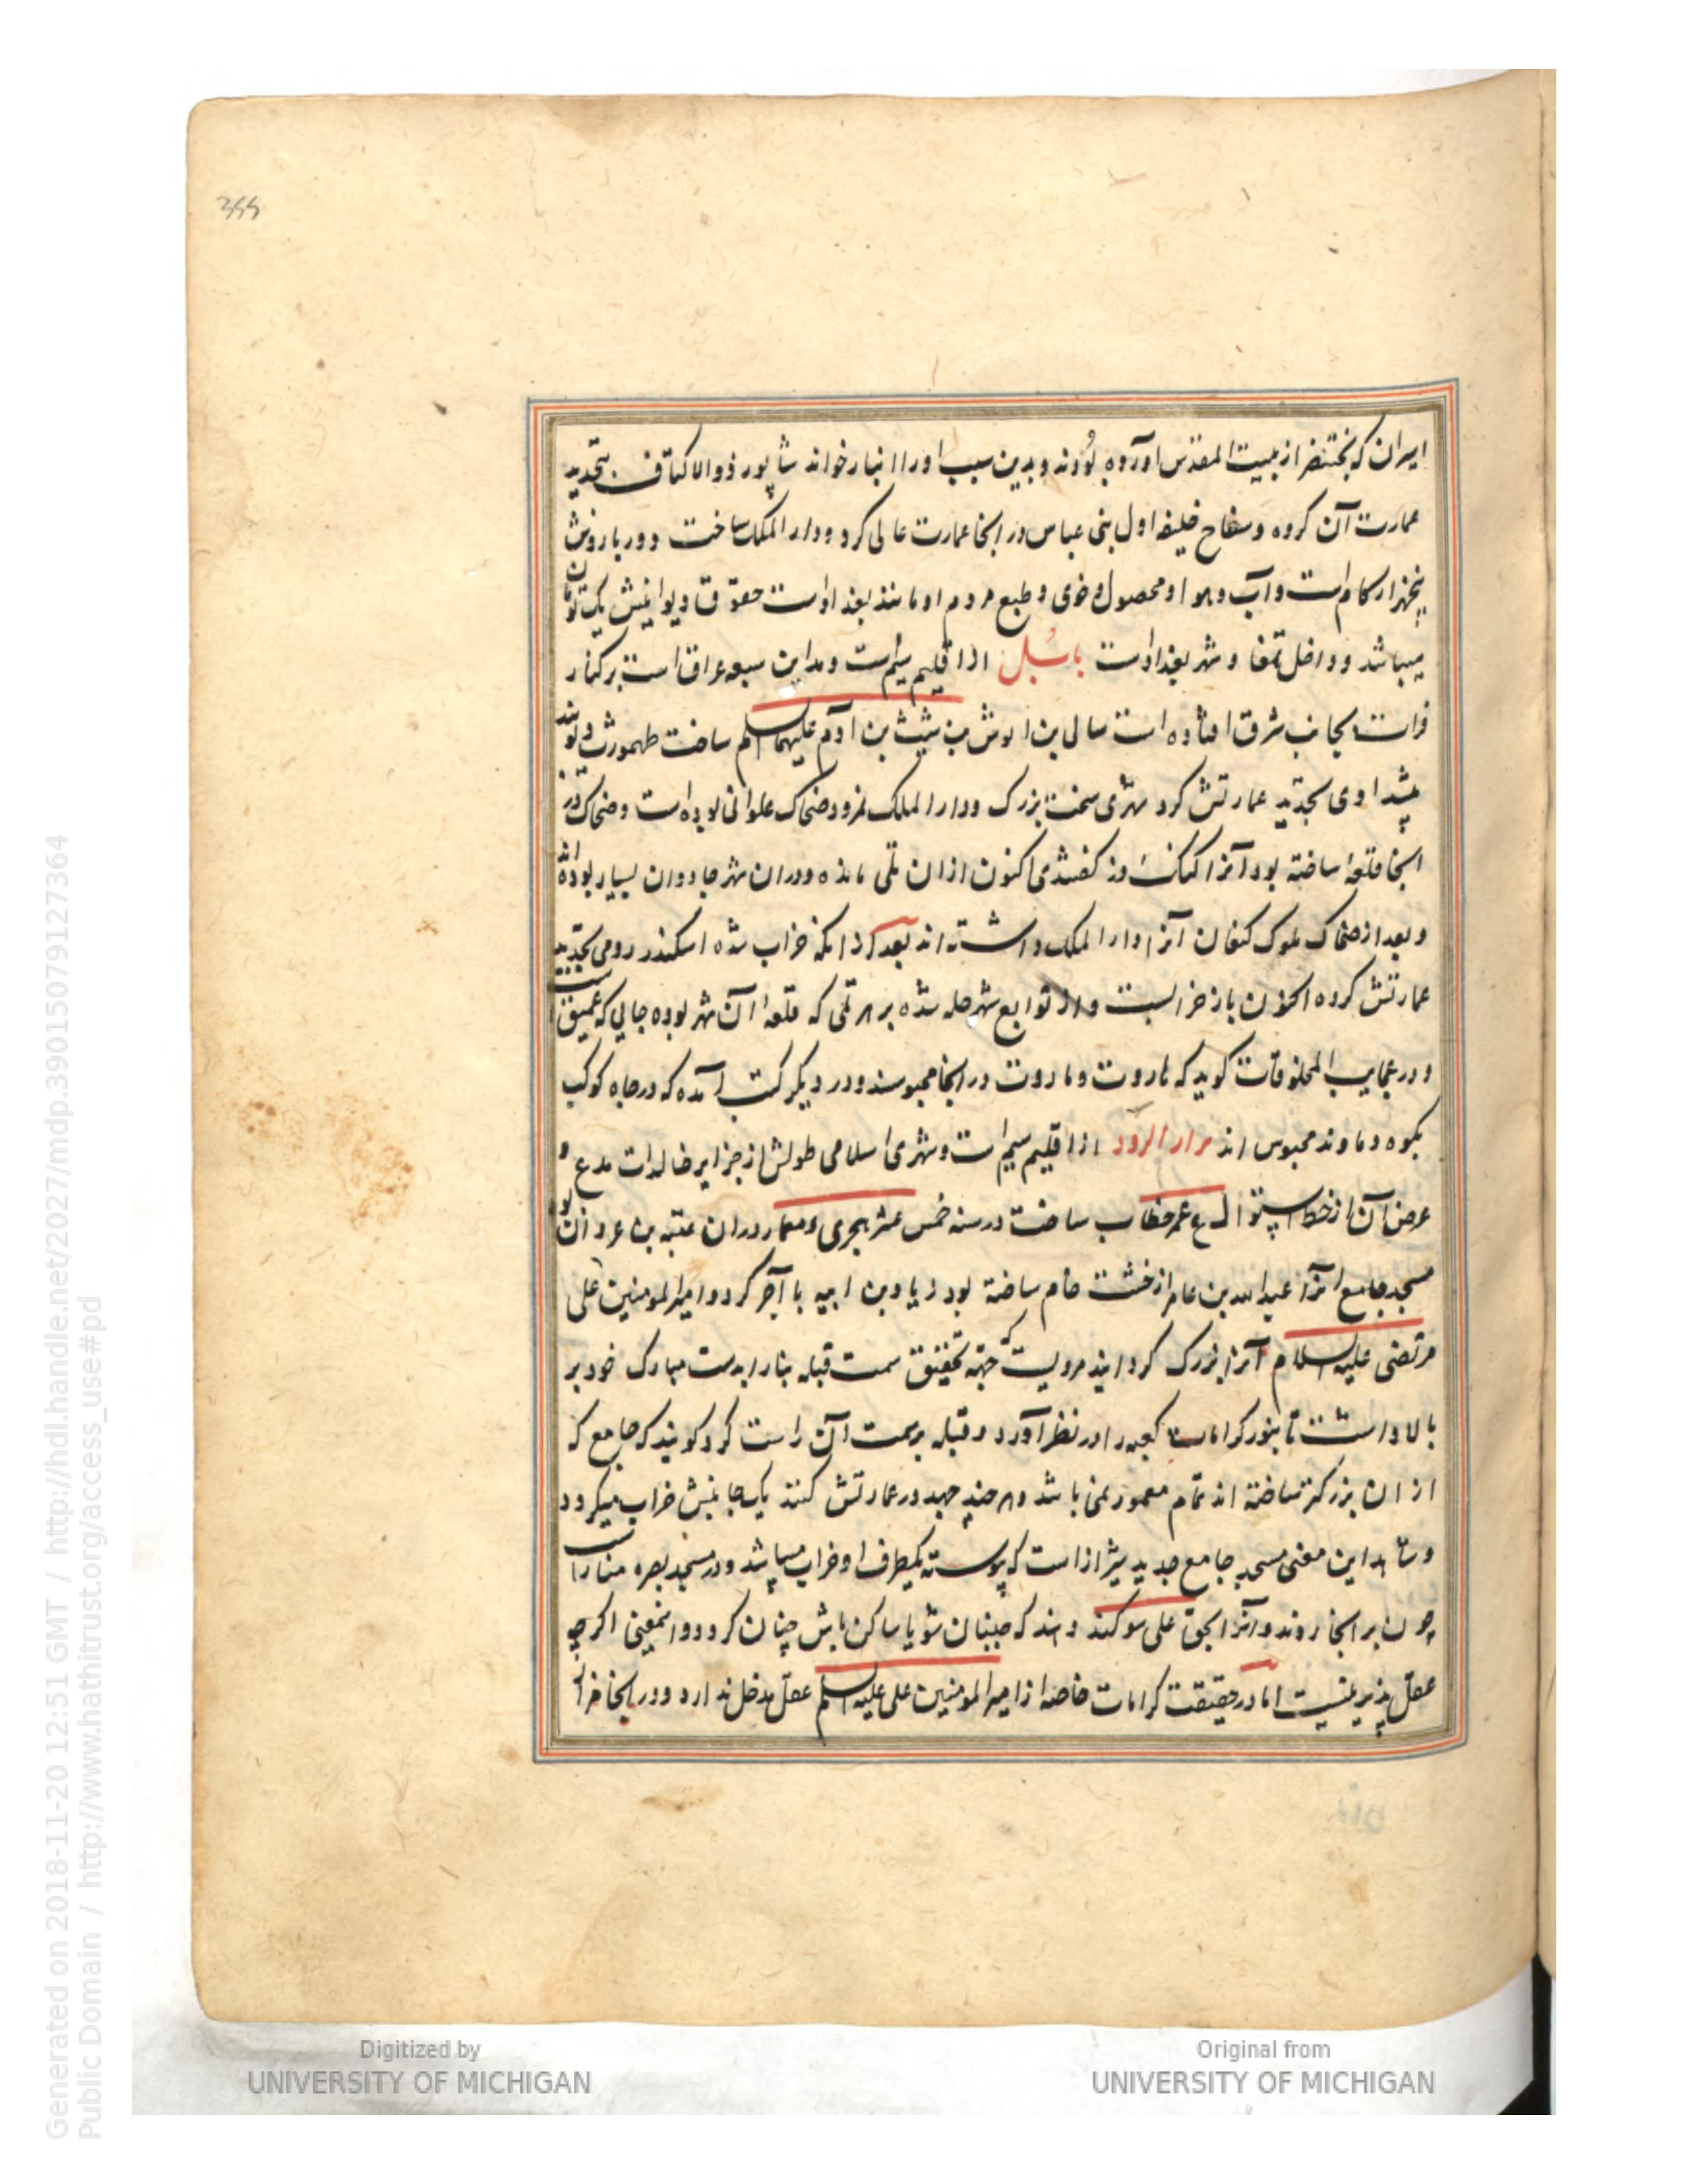 399
ایران که بختنصر از بیت المقدس آورده بودند و بدین سبب او را انبار خواند شاپور ذوالاکتاف بتجدید
عمارت آن کرده و سفاح خلیفه اول بنی عباس در انجا عمارت عالی کرد و دار الملک ساخت و دور باروش
پنجهزار کام است و آب و هوا و محصول و خوی و طبع مردم او مانند بغداد است حقوق دیوانیش یک تومان
میباشد و داخل تمغا و شهر بغداد است بابل از اقلیم سیم است و مداین سبعه عراق است بر کنار
فرات بجانب شرق افتاده است سال بن انوش بن شیث بن آدم علیهما السلم ساخت طهمورث دیوبند
پیشدادی بتجدید عمارتش کرد شهری سخت بزرک و دار الملک نمرود ضحاک علوانی بوده است و ضحاک در
انجا قلعه ساخته بود آنرا کنک دز کفتندی اکنون از ان تلی مانده و در ان شهر جادوان بسیار بوده اند
و بعد از ضحاک ملوک کنعان آنرا دار الملک داشته اند بعد از انکه خراب شده اسکندر رومی بتجدید
عمارتش کرده اکنون باز خرابست و از توابع شهر حله شده بر سر تلی که قلعه آن شهر بوده چاهی که عمیق است
و در عجایب المخلوقات کوید که هاروت و ماروت در انجا محبوسند و در دیکر کتب آمده که در چاه کوکب
بکوه دماوند محبوس اند مرار الرود از اقلیم سیم است و شهری اسلامی طولش از جزایر خالدات مدع و
عرض آن از خط استوا ل ع عمر خطاب ساخت در سنه خمس عشر هجری و معمار در ان عتبه بن عزوان بود
مسجد جامع آنرا عبد الله بن عامر از خشت خام ساخته بود زیاد بن ابیه با آجر کرد و امیر المومنین علی
مرتضی علیه السلام آنرا بزرک کردانید مرویست که جهة تحقیق سمت قبله بنا را بدست مبارک خود بر
بالا داشت تا بنور کرامات کعبه را در نظر آورد و قبله بر سمت آن راست کرد کویند که جامع که
از ان بزرکتر ساخته اند تمام معمور نمی باشد و هر چند جهد در عمارتش کنند یک جانبش خراب میکردد
و شاهد این معنی مسجد جامع جدید شیراز است که پیوسته یکطرف او خراب میباشد و در مسجد بصره مناره است
چون بر انجا روند و آنرا بحق علی سوکند دهند که جنبان شو یا ساکن باش چنان کردد و اینمعنی اکرچه
عقل پذیر نیست اما در حقیقت کرامات خاصه از امیر المومنین علی علیه السلم عقل مدخل ندارد و در انجا
Digitized by
UNIVERSITY OF MICHIGAN
Original from
UNIVERSITY OF MICHIGAN
Generated on 2018-11-20 12:51 GMT / http://hdl.handle.net/2027/mdp.39015079127364
Public Domain / http://www.hathitrust.org/access_use#pd